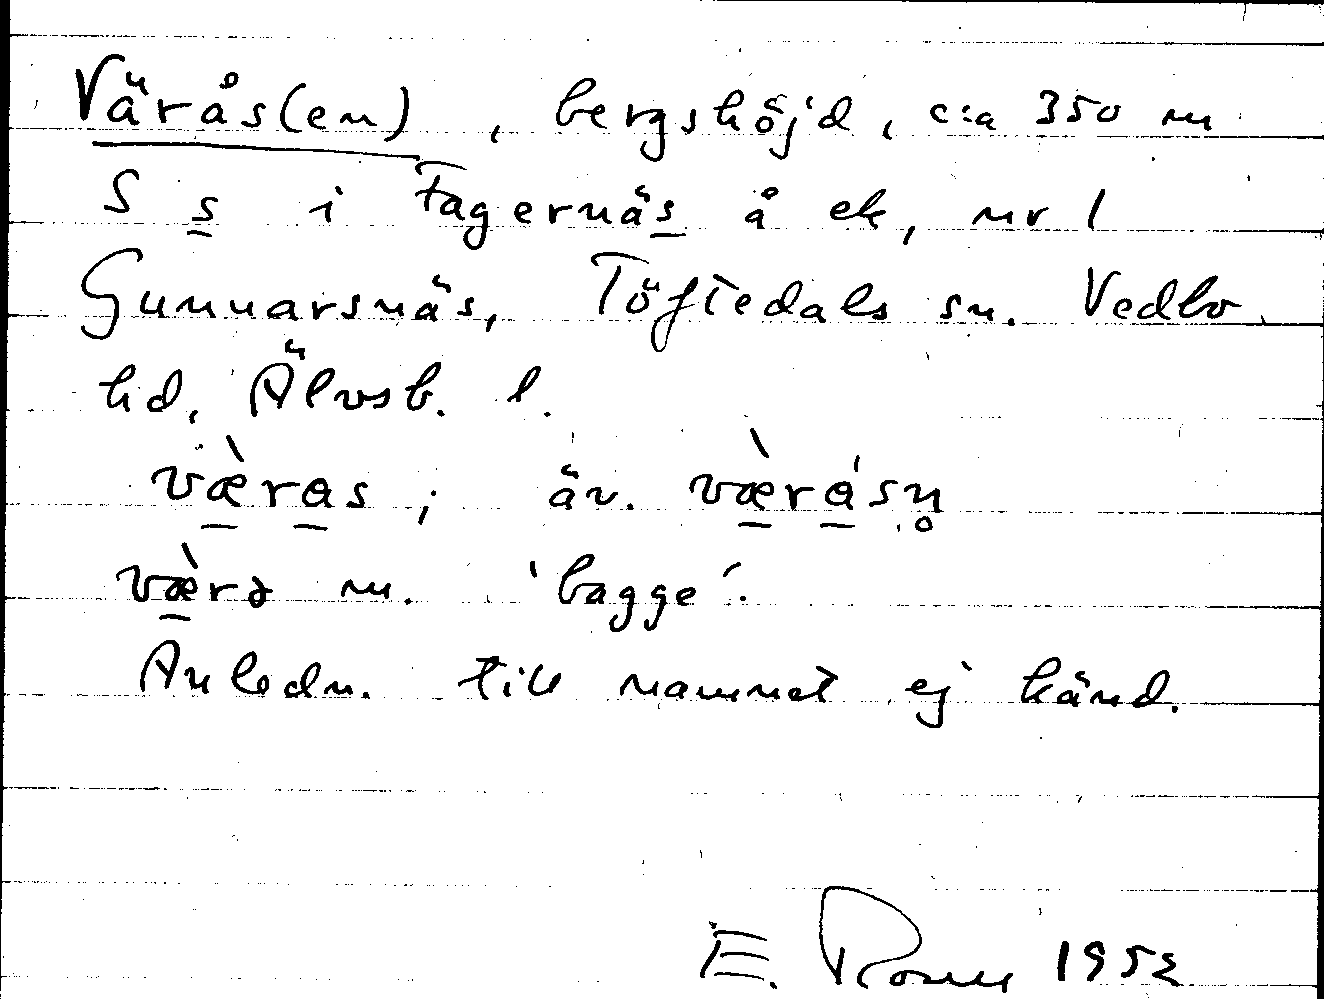 Värås(en), bergshöjd, c:a 350 m
S s i Fagernäs å ek, nr 1
Gunnarsnäs, Töftedals sn. Vedbo
hd, Älvsb. l.
væ̀ras; äv. væ̀rásn̥
væ̀rə m. 'bagge'.
Anledn. till namnet ej känd.
E. 1952